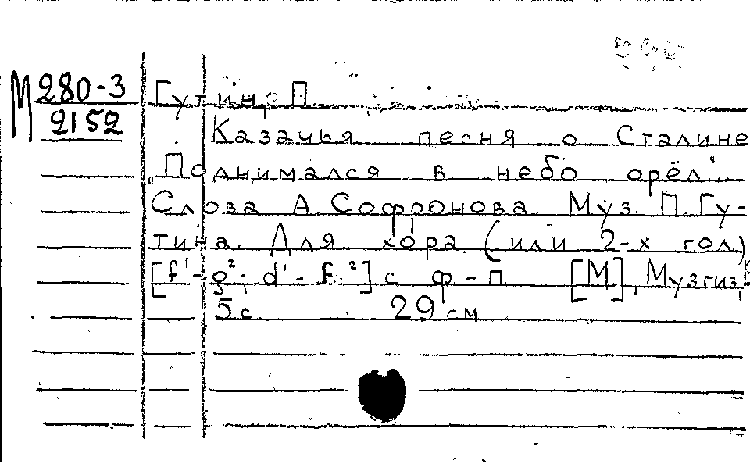 М 280-3
2152
Гутин, П.
Казачья песня о Сталине
„Поднимался в небо орёл".
Слова А. Софронова. Муз. П. Гу-
тина. Для хора (или 2-х гол.)
[f¹-g²; d¹-f²] с ф-п [М], Музгиз,
5 с. 29 см